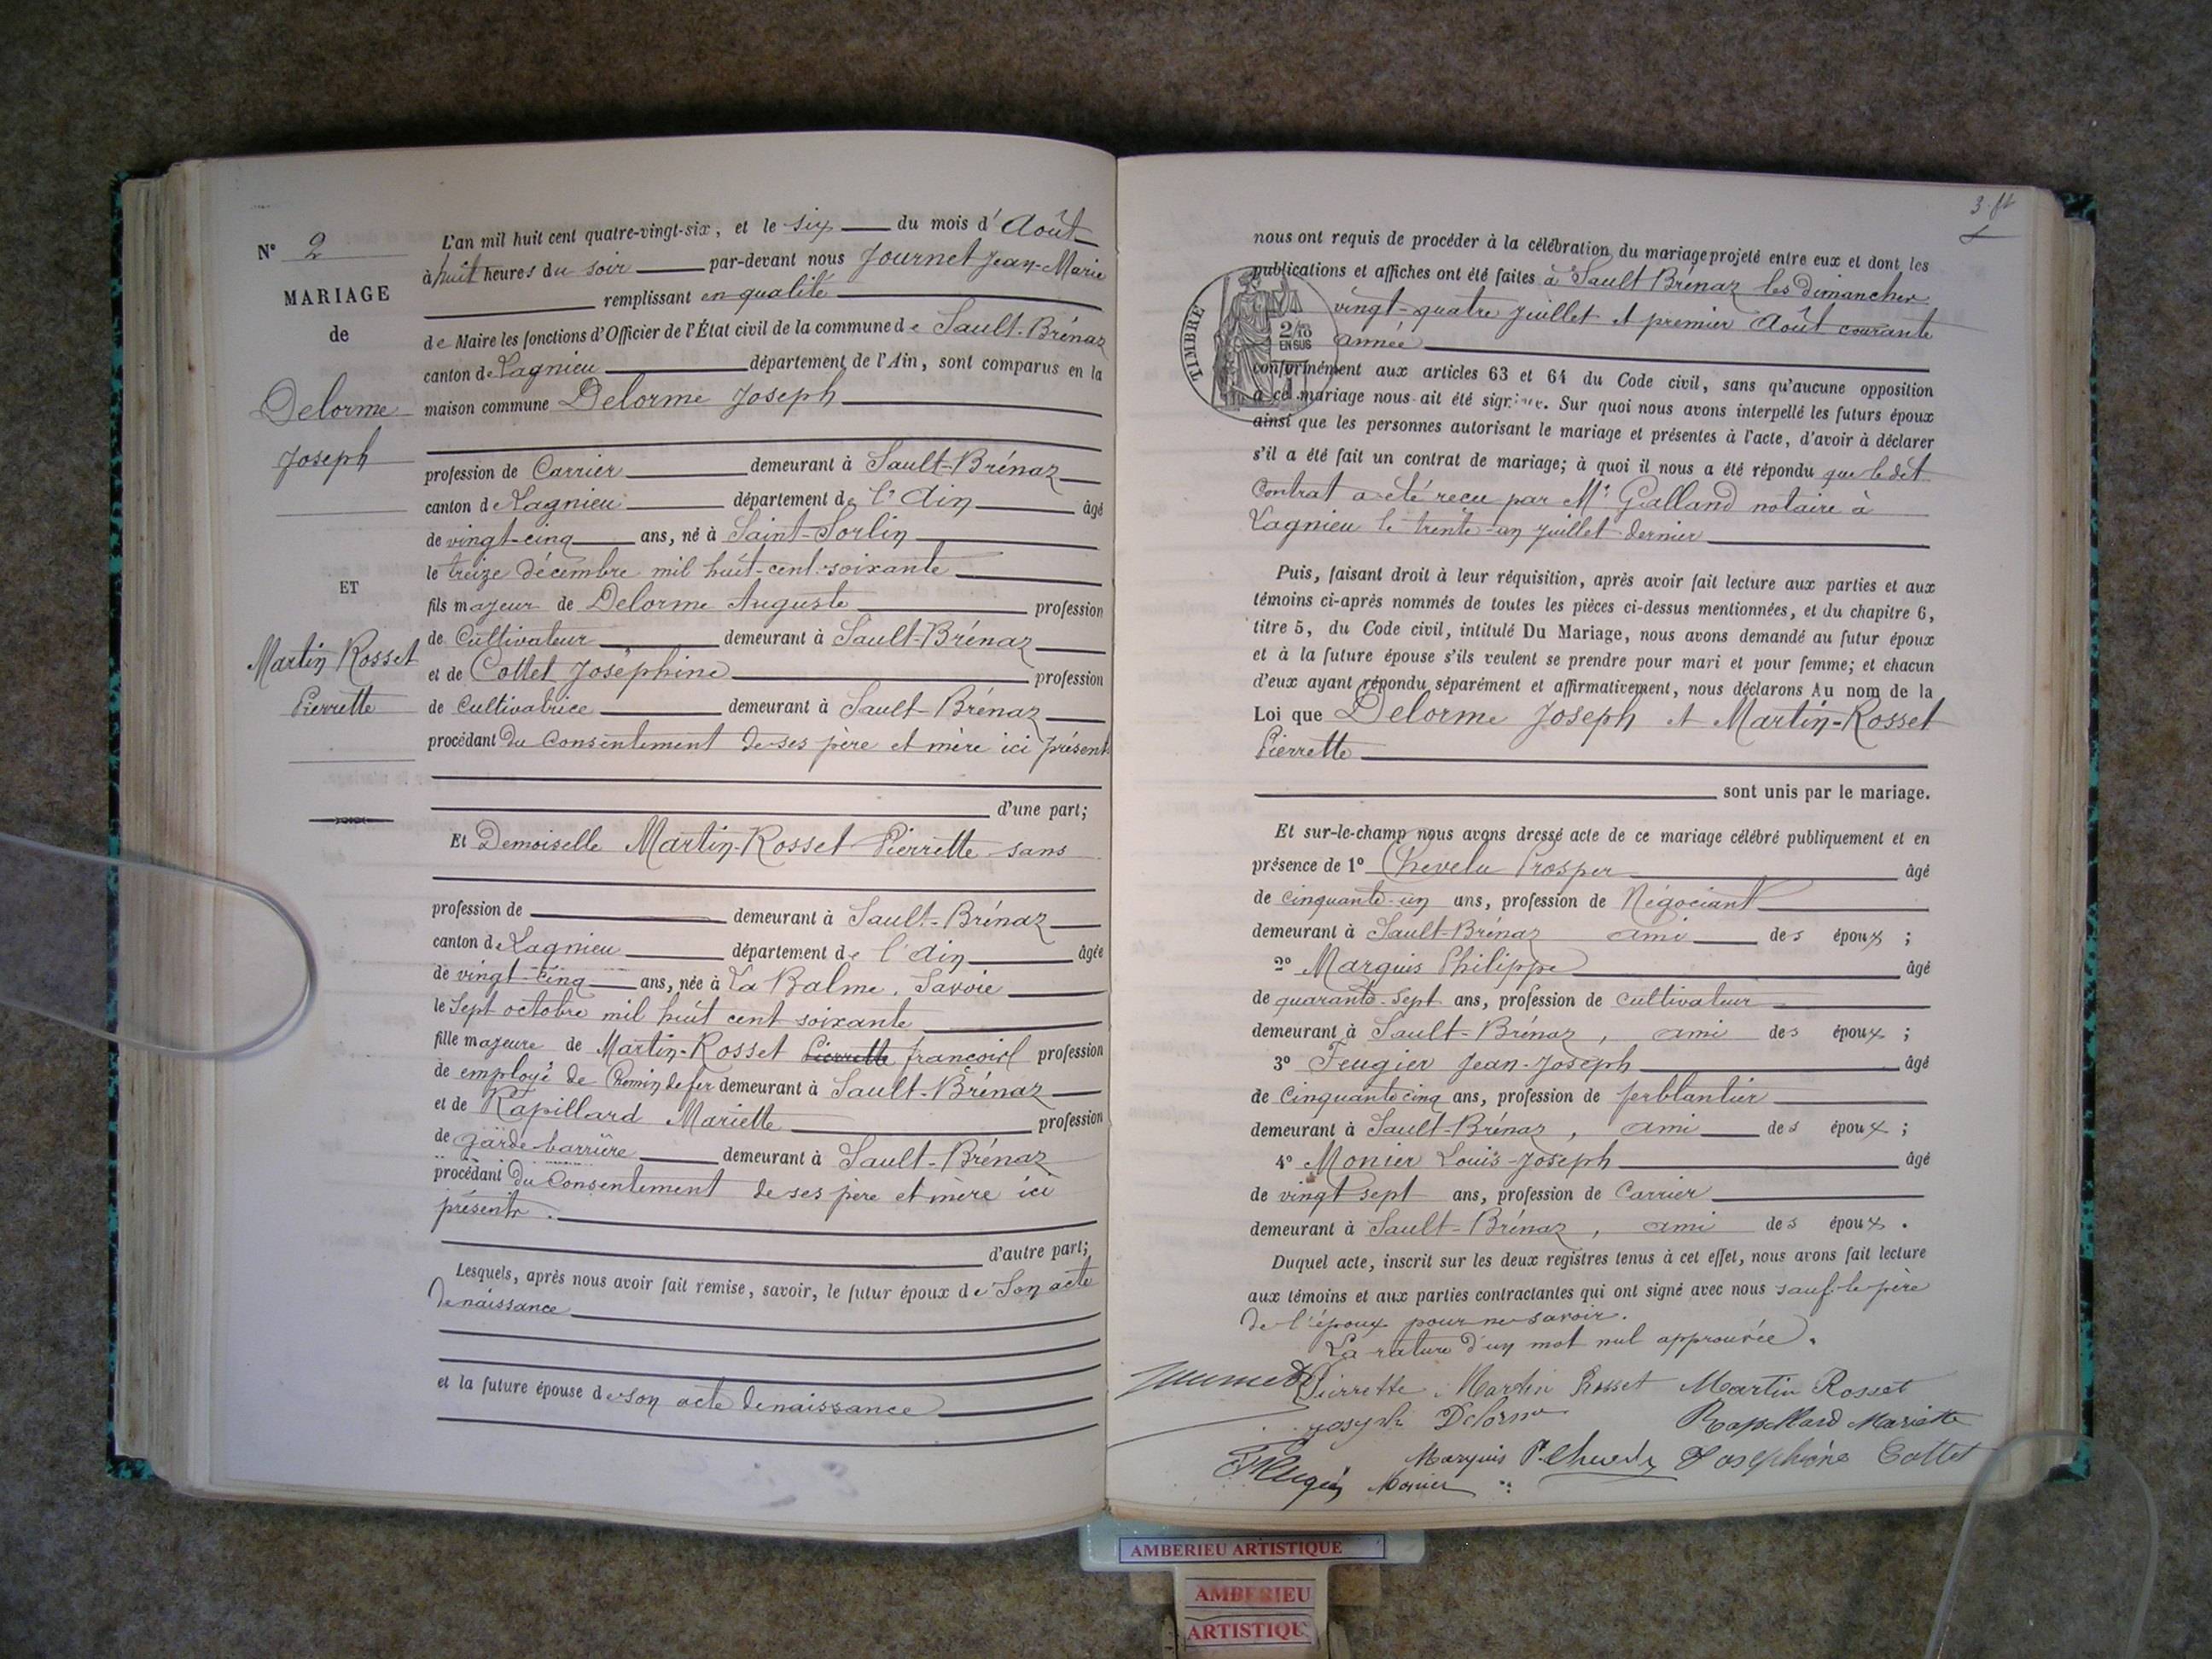 N° 2
MARIAGE
de
Delorme
Joseph
ET
Martin Rosset
Pierrette
L'an mil huit cent quatre-vingt-six, et le six du mois d'Août
à huit heures du soir par-devant nous Journet Jean-Marie
remplissant en qualité
de Maire les fonctions d'Officier de l'État civil de la commune de Sault-Brénaz
canton de Lagnieu département de l'Ain, sont comparus en la
maison commune Delorme Joseph
profession de Carrier demeurant à Sault-Brénaz
canton de Lagnieu département de l'Ain âgé
de vingt-cinq ans, né à Saint-Sorlin
le treize décembre mil huit-cent-soixante
fils majeur de Delorme Auguste profession
de Cultivateur demeurant à Sault-Brénaz
et de Collet Joséphine profession
de Cultivatrice demeurant à Sault-Brénaz
procédant du Consentement de ses père et mère ici présents
d'une part;
Et Demoiselle Martin-Rosset Pierrette sans
profession de demeurant à Sault-Brénaz
canton de Lagnieu département de l'Ain âgée
de vingt-cinq ans, née à La Balme, Savoie
le Sept octobre mil huit cent soixante
fille majeure de Martin-Rosset Pierrette françois profession
de employé de Chemin de fer demeurant à Sault-Brénaz
et de Rapillard Mariette profession
de garde-barrière demeurant à Sault-Brénaz
procédant du Consentement de ses père et mère ici
présents.
d'autre part;
Lesquels, après nous avoir fait remise, savoir, le futur époux de Son acte
de naissance
et la future épouse de son acte de naissance
3 ft
nous ont requis de procéder à la célébration du mariage projeté entre eux et dont les
publications et affiches ont été faites à Sault Brénaz les dimanches
vingt-quatre juillet et premier Août courante
année
TIMBRE
2/10
EN SUS
conformément aux articles 63 et 64 du Code civil, sans qu'aucune opposition
à ce mariage nous ait été signifiée. Sur quoi nous avons interpellé les futurs époux
ainsi que les personnes autorisant le mariage et présentes à l'acte, d'avoir à déclarer
s'il a été fait un contrat de mariage; à quoi il nous a été répondu que ledit
Contrat a été reçu par Me Galland notaire à
Lagnieu le trente-un juillet dernier
Puis, faisant droit à leur réquisition, après avoir fait lecture aux parties et aux
témoins ci-après nommés de toutes les pièces ci-dessus mentionnées, et du chapitre 6,
titre 5, du Code civil, intitulé Du Mariage, nous avons demandé au futur époux
et à la future épouse s'ils veulent se prendre pour mari et pour femme; et chacun
d'eux ayant répondu séparément et affirmativement, nous déclarons Au nom de la
Loi que Delorme Joseph et Martin-Rosset
Pierrette
sont unis par le mariage.
Et sur-le-champ nous avons dressé acte de ce mariage célébré publiquement et en
présence de 1° Chevelu Prosper âgé
de cinquante-un ans, profession de Négociant
demeurant à Sault-Brénaz ami des époux ;
2° Marquis Philippe âgé
de quarante-sept ans, profession de cultivateur
demeurant à Sault-Brénaz, ami des époux ;
3° Feugier Jean-Joseph âgé
de Cinquante cinq ans, profession de ferblantier
demeurant à Sault-Brénaz, ami des époux ;
4° Monier Louis-Joseph âgé
de vingt sept ans, profession de Carrier
demeurant à Sault-Brénaz, ami des époux.
Duquel acte, inscrit sur les deux registres tenus à cet effet, nous avons fait lecture
aux témoins et aux parties contractantes qui ont signé avec nous sauf le père
de l'époux pour ne savoir.
La rature d'un mot nul approuvée.
Journet Pierrette Martin Rosset Martin Rosset
joseph Delorme Rapillard Mariette
Marquis P. Chevelu Joséphine Collet
Feugier Monier
AMBERIEU ARTISTIQUE
AMBERIEU
ARTISTIQU